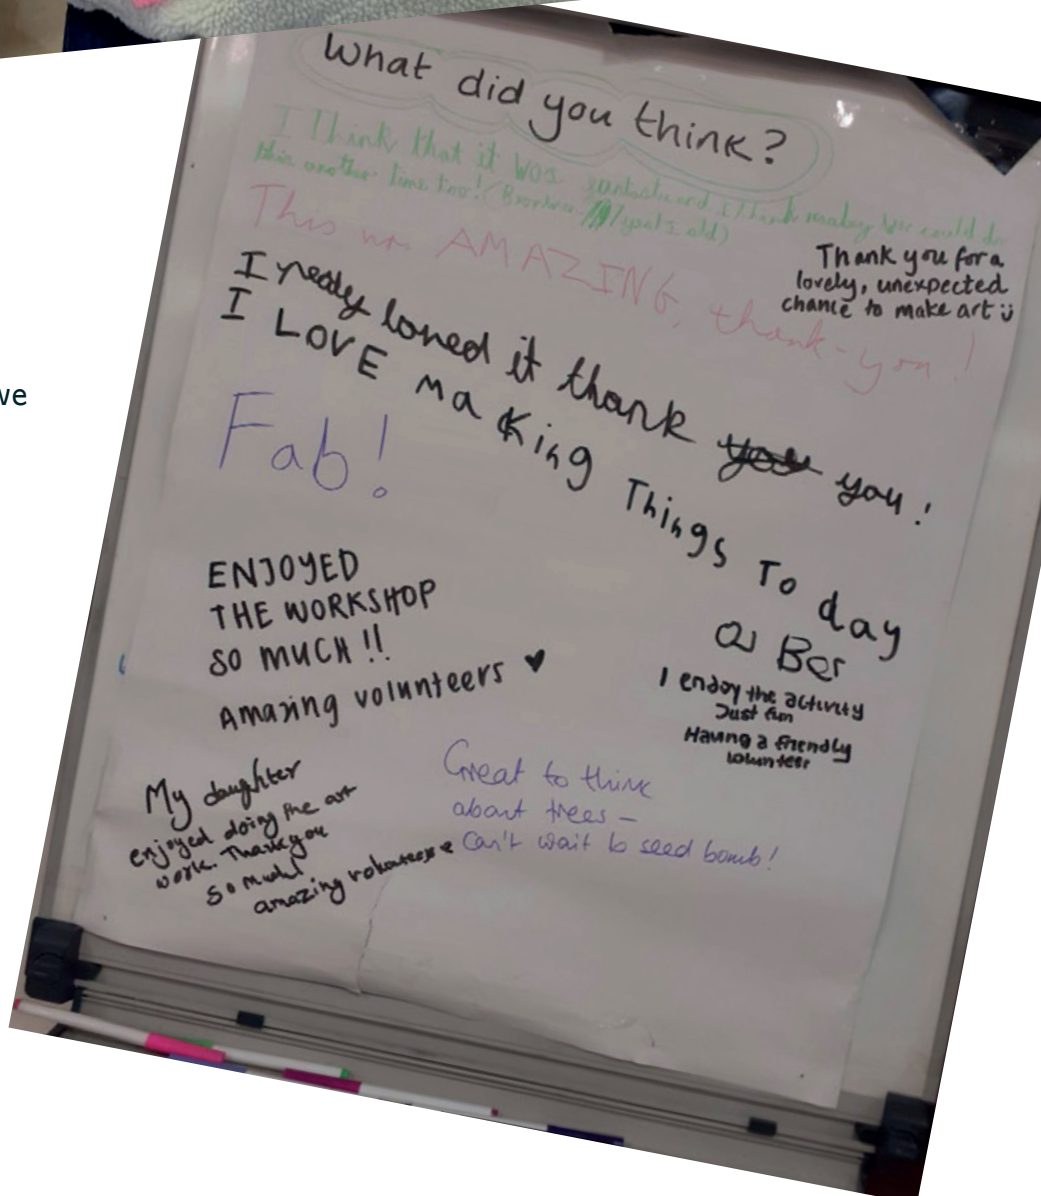 What did you think?
I Think that it was fantastic and i think maybe we could do
this another time too! ( 7 years old)
This was AMAZING, thank-you!
Thank you for a
lovely, unexpected
chance to make art
I realy loved it thank you you!
I LOVE making Things To day
Fab!
ENJOYED
THE WORKSHOP
SO MUCH!!
Amazing volunteers ♥
I endoy the activity
Just fun
Having a friendly
volunteer
My daughter
enjoyed doing the art
work. Thank you
so much
amazing
Great to think
about trees –
Can't wait to seed bomb!